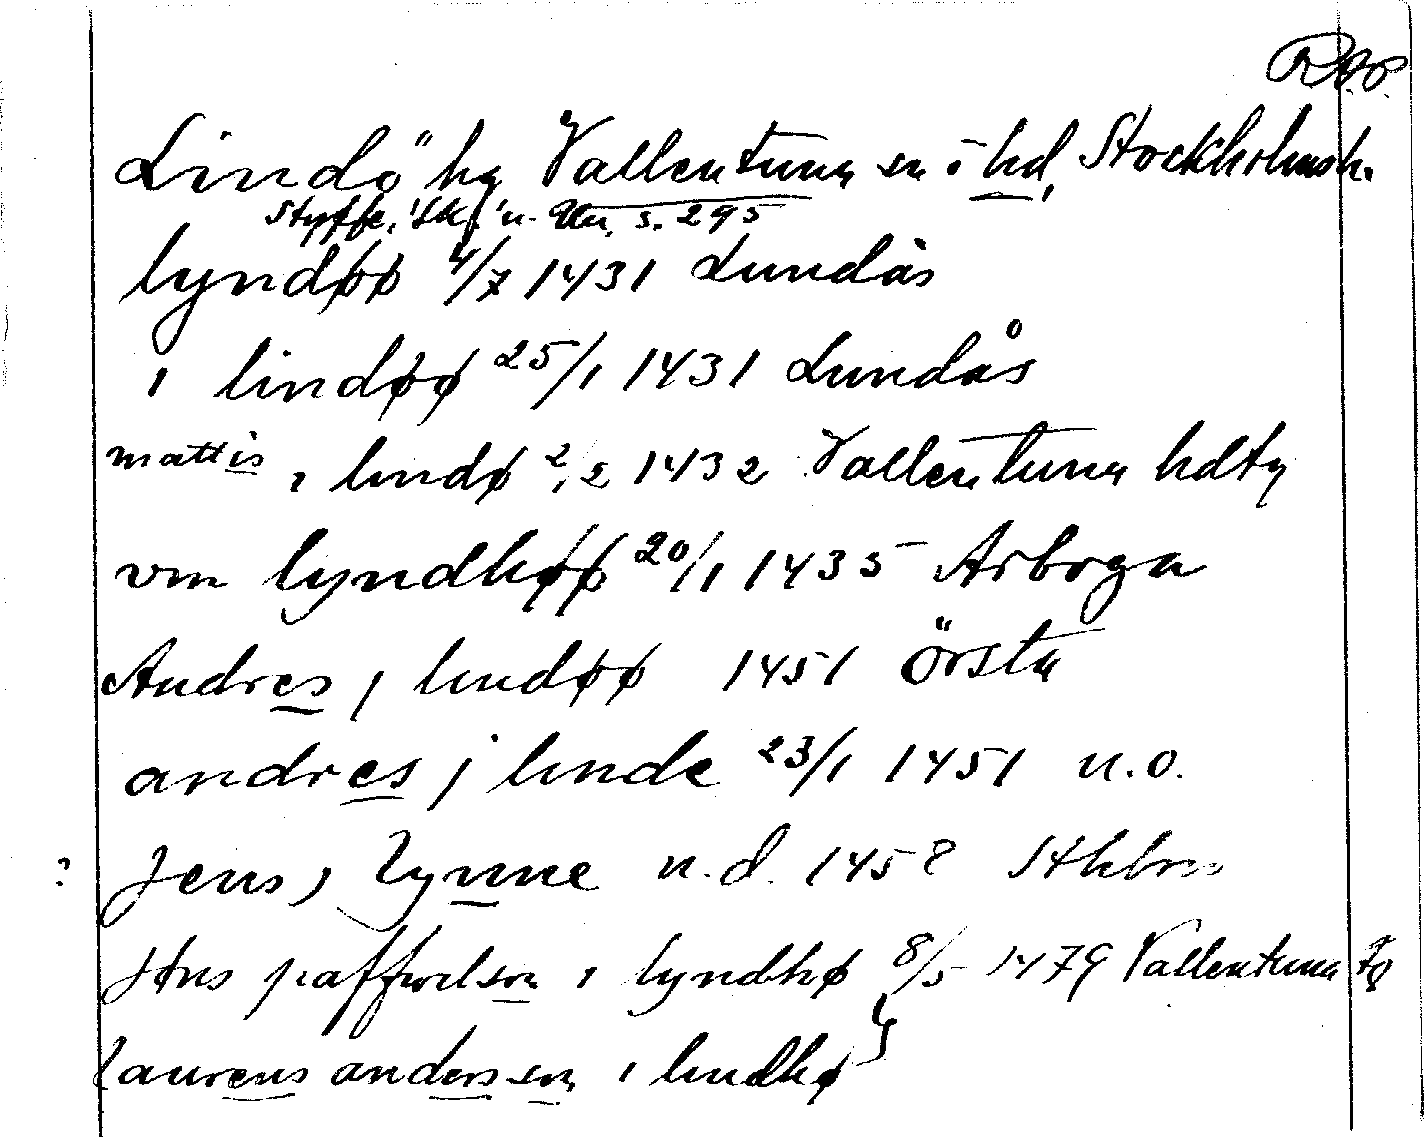 RAp.
Lindö by Vallentuna sn o hd, Stockholms l.
Styffe, 'Sk' u. Un. s. 295
lyndøø 4/7 1431 Lundås
i lindøø 25/1 1431 Lundås
mattis i lindø 2/2 1432 Vallentuna hdtg
vm lyndhøø 20/1 1435 Arboga
Andres j lindøø 1451 Örsta
andres j linde 23/1 1451 u.o.
? Jens j lynne u.d. 145? Sthlm
Jøns paffwelson i lyndhø 8/5 1479 Vallentuna tg
laurens anderssen i lindhø